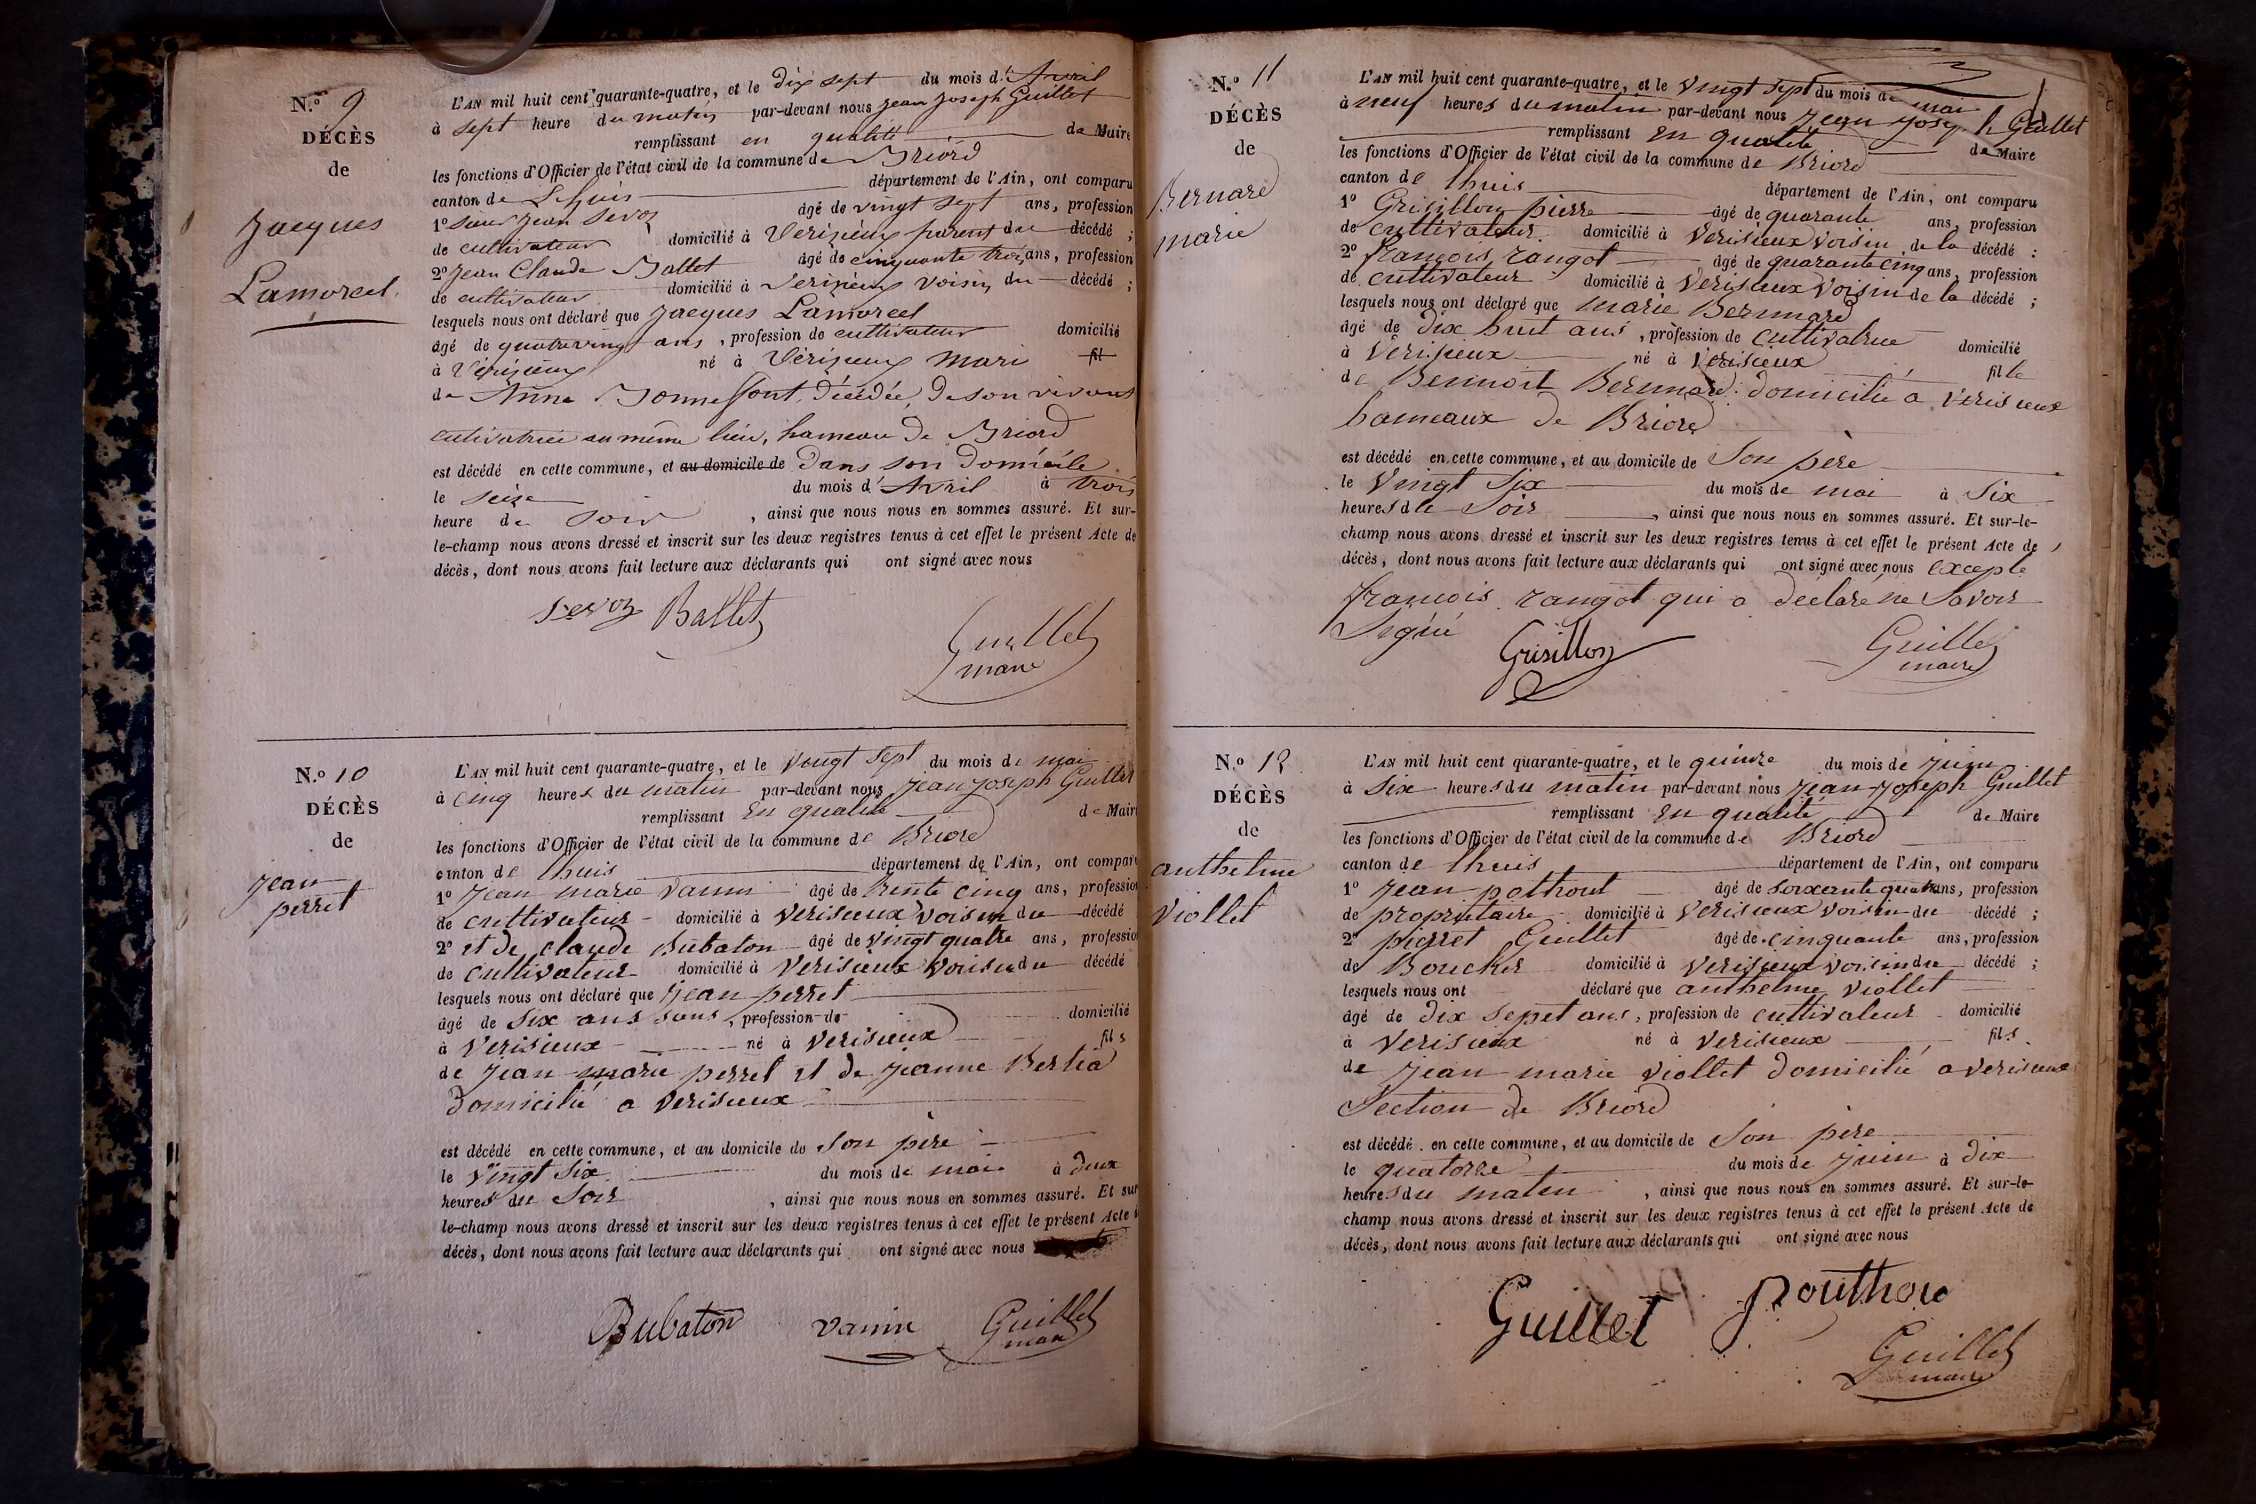 N.º 9
DÉCÈS
de
Jacques
Lamorcel
L'AN mil huit cent quarante-quatre, et le dix sept du mois d'Avril
à sept heure du matin par-devant nous jean joseph Guillet
remplissant en qualité de Maire
les fonctions d'Officier de l'état civil de la commune de Briord
canton de Lhuis département de l'Ain, ont comparu
1º jean Sevoz âgé de vingt sept ans, profession
de cultivateur domicilié à Verizieux parent du décédé ;
2º jean Claude Ballet âgé de cinquante trois ans, profession
de cultivateur domicilié à Verizieux voisin du décédé ;
lesquels nous ont déclaré que jacques Lamorcel
âgé de quatrevingt ans, profession de cultivateur domicilié
à Vérizieux né à Vérizieux mari fil
de Anne Bonnefont, décédée, de son vivant
cultivatrice au même lieu, hameau de Briord
est décédé en cette commune, et au domicile de dans son domicile
le seize du mois d'Avril à trois
heure de soir, ainsi que nous nous en sommes assuré. Et sur-
le-champ nous avons dressé et inscrit sur les deux registres tenus à cet effet le présent Acte de
décès, dont nous avons fait lecture aux déclarants qui ont signé avec nous
Sevoz Ballet
Guillet
maire
N.º 10
DÉCÈS
de
jean
perret
L'AN mil huit cent quarante-quatre, et le vengt sept du mois de mai
à cinq heures du matin par-devant nous jean joseph Guillet
remplissant en qualité de Maire
les fonctions d'Officier de l'état civil de la commune de Briord
canton de lhuis département de l'Ain, ont comparu
1º jean marie vanin âgé de trente cinq ans, profession
de cultivateur domicilié à verisieux voisin du décédé
2º et de claude Bubaton âgé de vingt quatre ans, profession
de cultivateur domicilié à verisieux voisin du décédé
lesquels nous ont déclaré que jean perret
âgé de six ans sans, profession de domicilié
à verisieux né à verisieux fils
de jean marie perret et de jeanne Bertia
domicilié a verisieux
est décédé en cette commune, et au domicile de son père
le vingt six du mois de mai à deux
heures du soir, ainsi que nous nous en sommes assuré. Et sur
le-champ nous avons dressé et inscrit sur les deux registres tenus à cet effet le présent Acte
décès, dont nous avons fait lecture aux déclarants qui ont signé avec nous
Bubaton vanin Guillet
maire
N.º 11
DÉCÈS
de
Bernard
marie
L'AN mil huit cent quarante-quatre, et le vingt sept du mois de mai
à neuf heures du matin par-devant nous jean joseph Guillet
remplissant en qualité de Maire
les fonctions d'Officier de l'état civil de la commune de Briord
canton de lhuis département de l'Ain, ont comparu
1º Grisillon pierre âgé de quarante ans, profession
de cultivateur domicilié à verisieux voisin de la décédé ;
2º françois rangot âgé de quarante cinq ans, profession
de cultivateur domicilié à verisieux voisin de la décédé ;
lesquels nous ont déclaré que marie Bernnard
âgé de dix huit ans, profession de cultivatrice domicilié
à verisieux né à verisieux fille
de Bennoit Bernnard domicilié a verisieux
hameaux de Briord
est décédé en cette commune, et au domicile de son père
le vingt six du mois de mai à six
heures de soir, ainsi que nous nous en sommes assuré. Et sur-le-
champ nous avons dressé et inscrit sur les deux registres tenus à cet effet le présent Acte de
décès, dont nous avons fait lecture aux déclarants qui ont signé avec nous excepte
françois rangot qui a déclaré ne savoir
signé
Grisillon
Guillet
maire
N.º 12
DÉCÈS
de
anthelme
viollet
L'AN mil huit cent quarante-quatre, et le quinze du mois de juin
à six heures du matin par-devant nous jean joseph Guillet
remplissant en qualité de Maire
les fonctions d'Officier de l'état civil de la commune de Briord
canton de lhuis département de l'Ain, ont comparu
1º jean pothout âgé de soixante quatre ans, profession
de proprietaire domicilié à verisieux voisin du décédé ;
2º pierret Guillet âgé de cinquante ans, profession
de Boucher domicilié à verisieux voisin du décédé ;
lesquels nous ont déclaré que anthelme viollet
âgé de dix sepet ans, profession de cultivateur domicilié
à verisieux né à verisieux fils
de jean marie viollet domicilié a verisieux
section de Briord
est décédé en cette commune, et au domicile de son père
le quatorze du mois de juin à dix
heures du matin, ainsi que nous nous en sommes assuré. Et sur-le-
champ nous avons dressé et inscrit sur les deux registres tenus à cet effet le présent Acte de
décès, dont nous avons fait lecture aux déclarants qui ont signé avec nous
Guillet pouthou
Guillet
maire